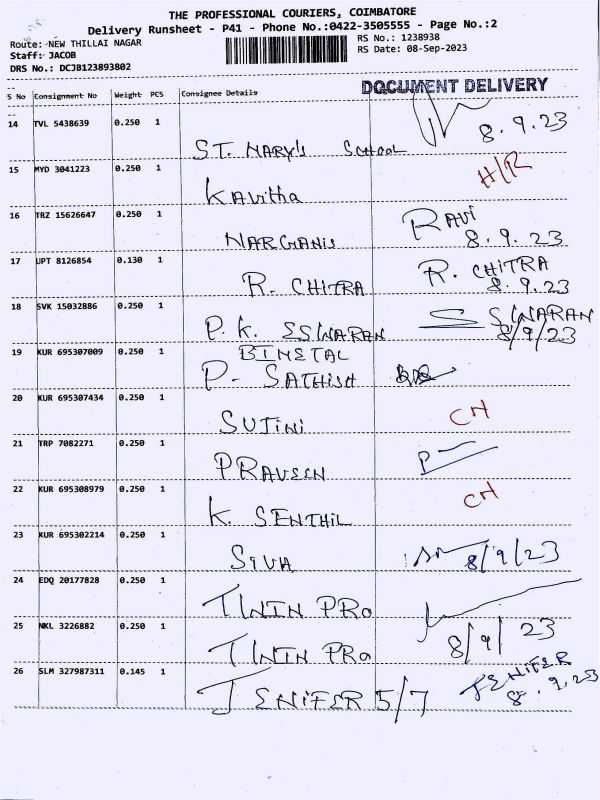 THE PROFESSIONAL COURIERS, COIMBATORE
Delivery Runsheet - P41 - Phone No.:0422-3505555 - Page No.:2
Route: NEW THILLAI NAGAR
RS No.: 1238938
Staff: JACOB
RS Date: 08-Sep-2023
DRS No.: DCJB123893802
DOCUMENT DELIVERY
S No Consignment No Weight PCS Consignee Details
14 TVL 5438639 0.250 1 ST. MARY'S SCHOOL 8.9.23
15 MYD 3041223 0.250 1 Kavitha H/R
16 TRZ 15626647 0.250 1 NARGANIS RAVi 8.9.23
17 UPT 8126854 0.130 1 R. CHITRA R. CHITRA 8.9.23
18 SVK 15032886 0.250 1 P.K. ESWARAN 8/9/23
19 KUR 695307009 0.250 1 BIMETAL
P- SATHISH
20 KUR 695307434 0.250 1 SUJINI CH
21 TRP 7082271 0.250 1 PRAVEEN
22 KUR 695308979 0.250 1 K. SENTHIL CH
23 KUR 695302214 0.250 1 SIVA 8/9/23
24 EDQ 20177828 0.250 1 TWIN PRO
25 NKL 3226882 0.250 1 TWIN PRO 8/9/23
26 SLM 327987311 0.145 1 JENIFER 5/7 JENIFER 8.9.23